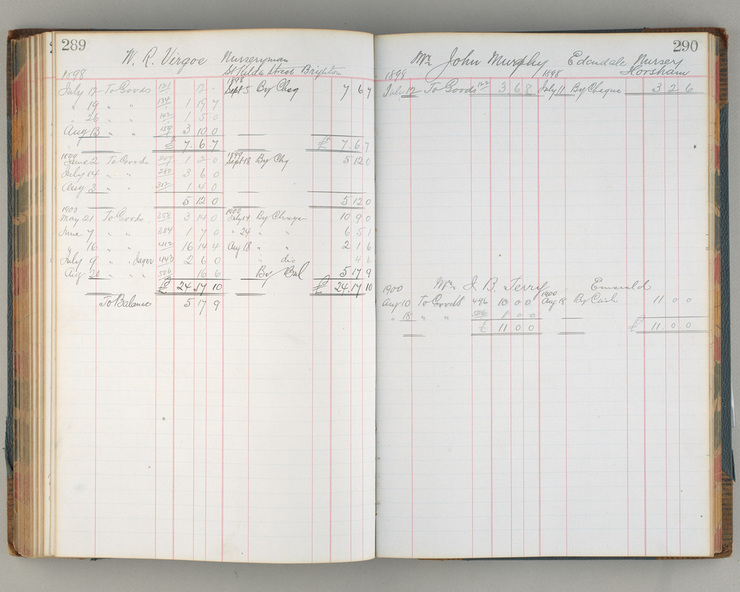 289
W. R. Virgoe Nurseryman
St Kilda Street Brighton
1898 1898
July 12 To Goods 12 Sept 5 By Cheq 7 6 7
" 19 " " 1 19 7
" 26 " " 1 5 0
Aug 13 " " 3 10 0
£ 7 6 7 £ 7 6 7
1899 1899
June 2 To Goods 1 2 0 Sept 18 By Chq 5 12 0
July 14 " " 3 6 0
Aug 3 " " 1 4 0
5 12 0 5 12 0
1900 1900
May 21 To Goods 3 14 0 July 14 By Cheque 10 9 0
June 7 " " 1 7 0 " 24 " " 6 5 1
" 16 " " 16 14 4 Aug 18 " " 2 1 6
July 9 " " 2 6 0 " dis 4 6
Aug " " 16 6 By Bal 5 17 9
£ 24 17 10 £ 24 17 10
To Balance 5 17 9
290
Mr John Murphy Edendale Nursery
Horsham
1898 1898
July 12 To Goods 3 6 8 July 11 By Cheque 3 2 6
Mr J. B. Terry Emerald
1900 1900
Aug 10 To Goods 496 10 0 0 Aug 18 By Cash 11 0 0
" 18 " " 1 0 0
£ 11 0 0 £ 11 0 0